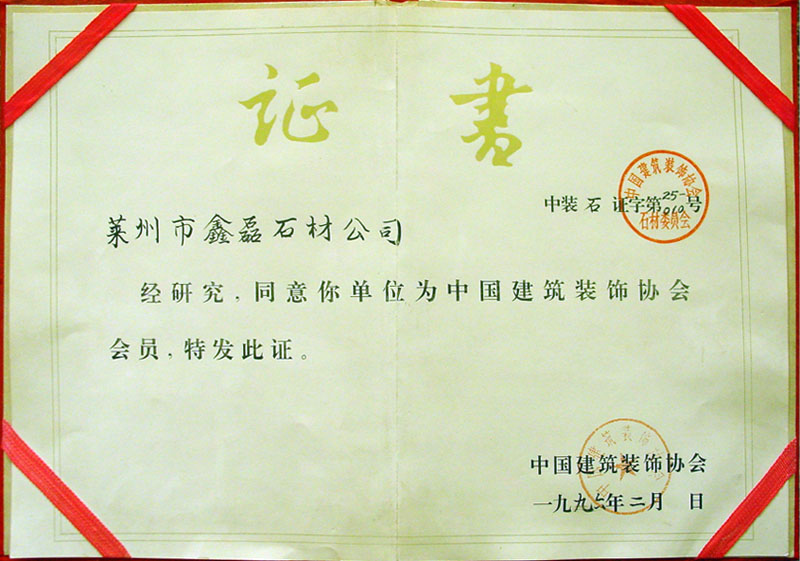 证书
中国建筑装饰协会
石材委员会
中装石证字第25-号
莱州市鑫磊石材公司
经研究，同意你单位为中国建筑装饰协会
会员，特发此证。
中国建筑装饰协会
一九九六年二月 日